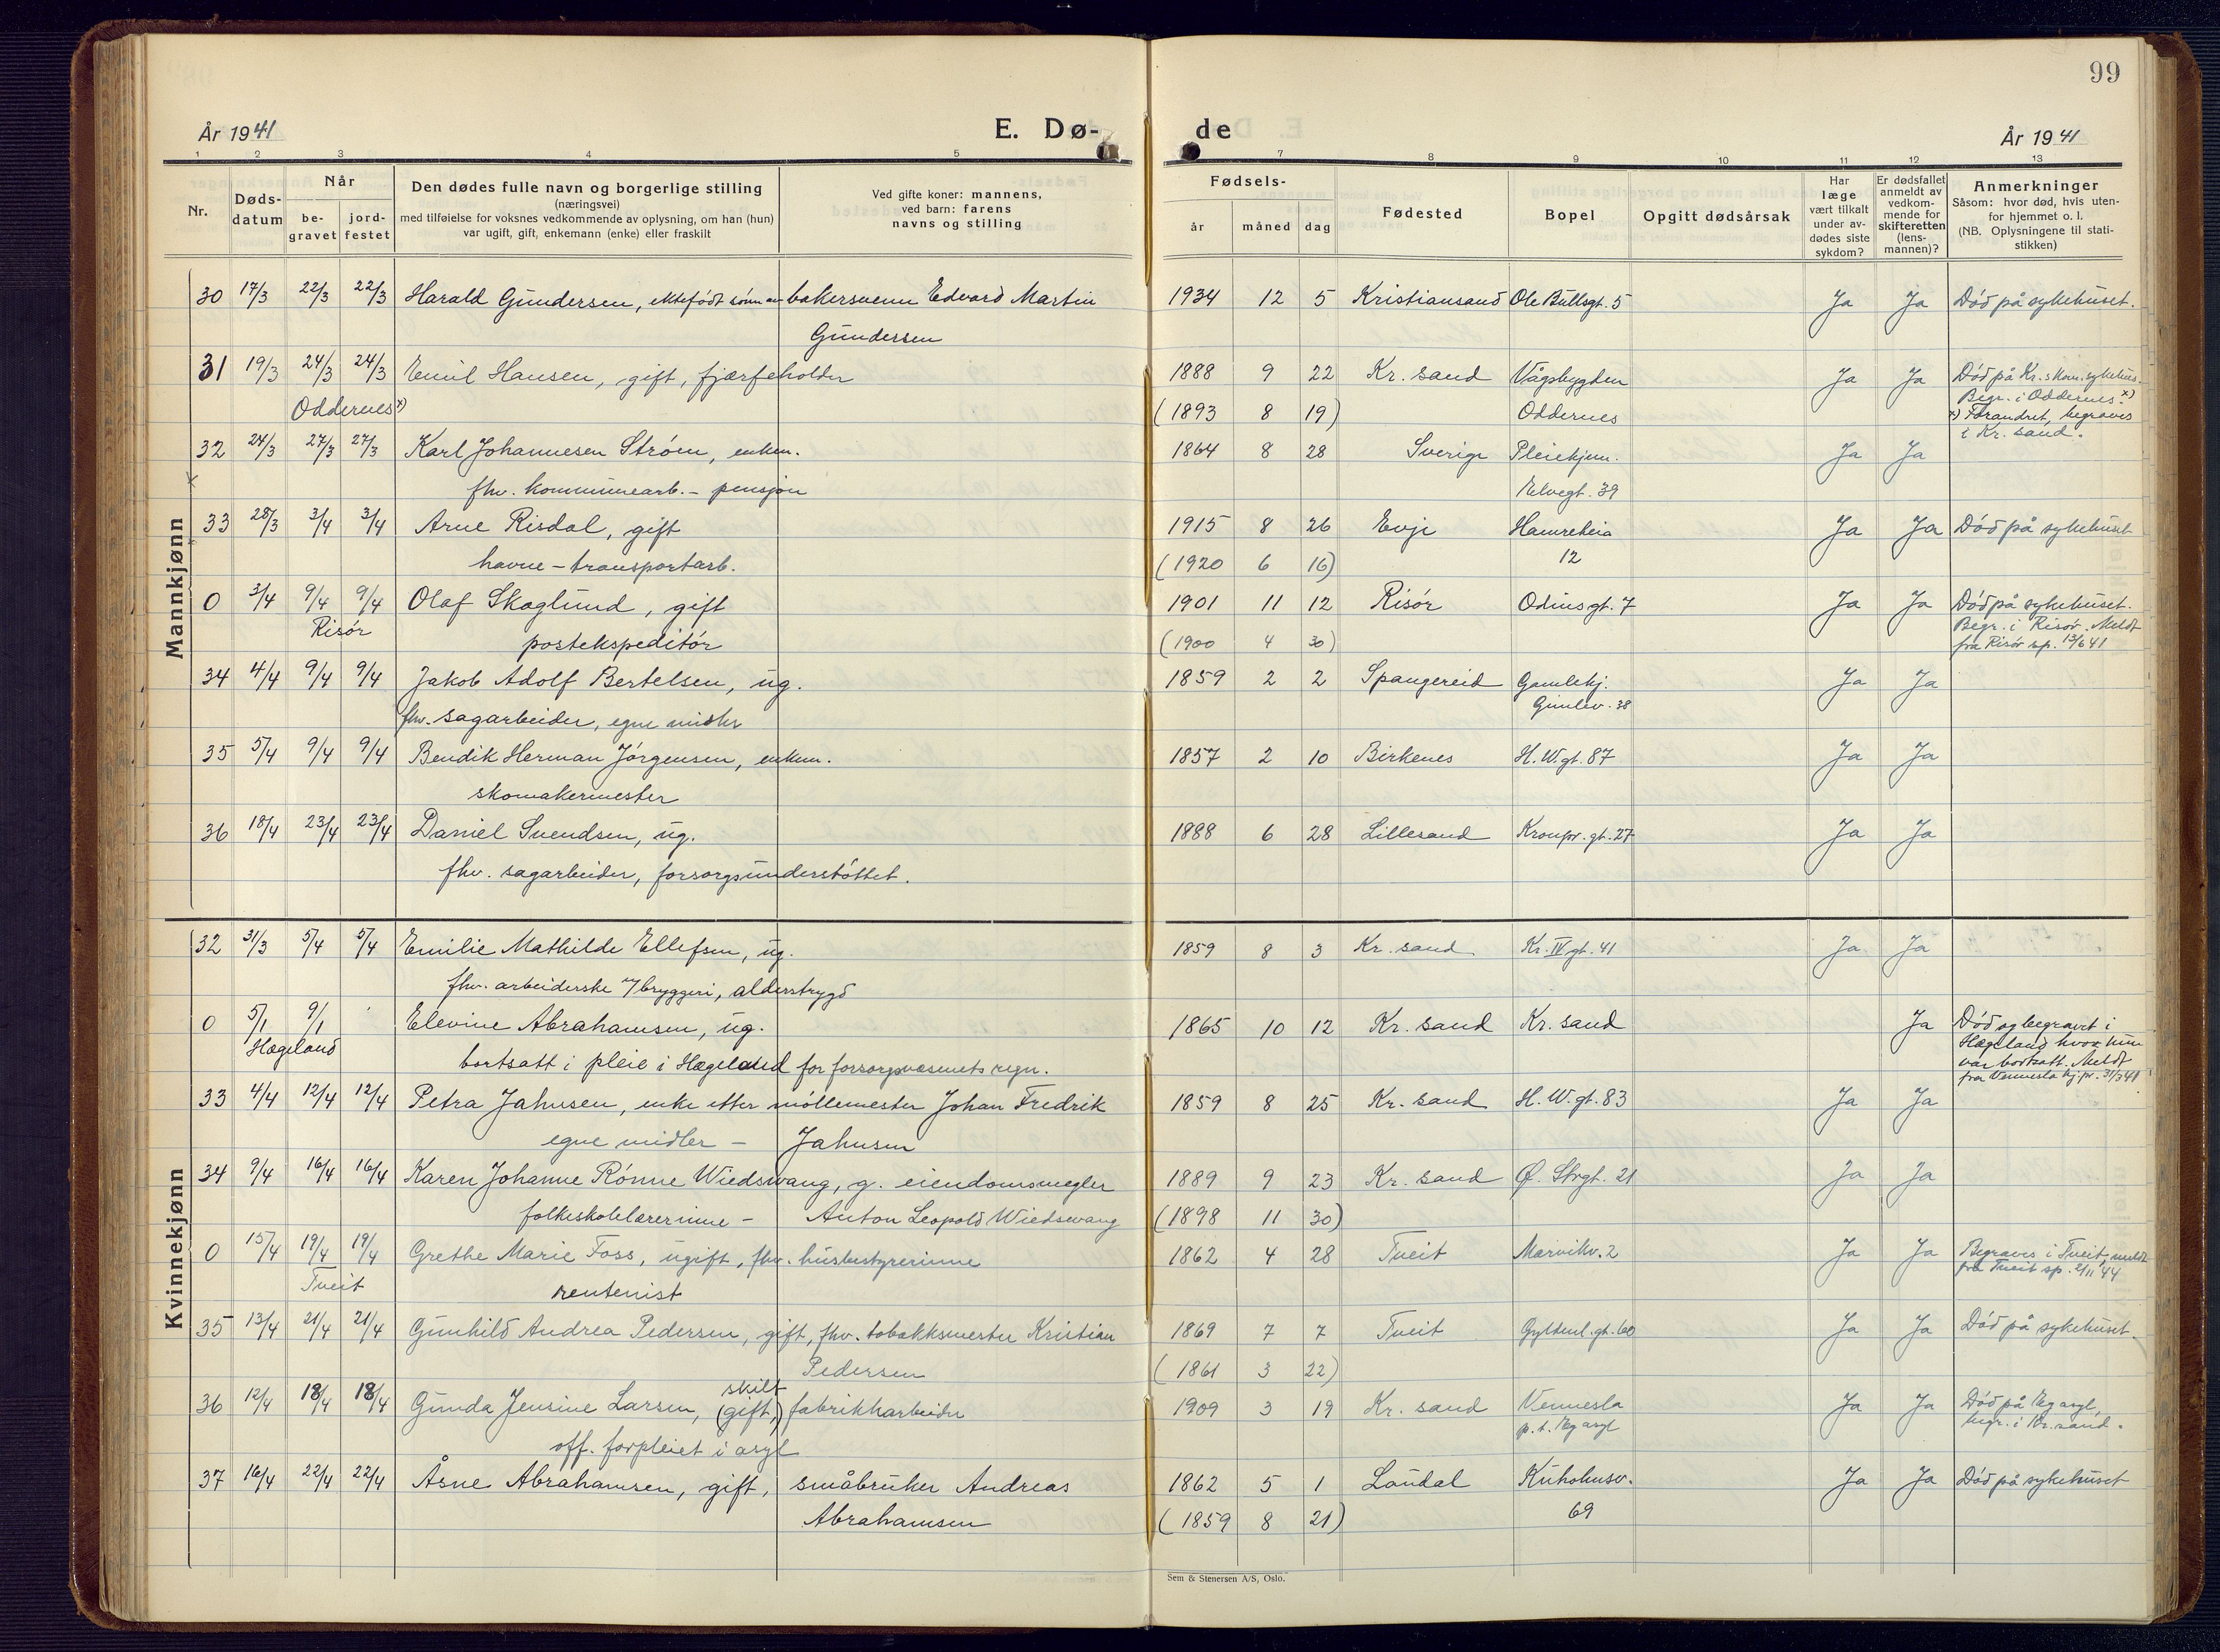 99
År 1941
E. Dø-
de
År 1941
1 2 3 4 5 7 8 9 10 11 12 13
Nr.
Døds-
datum
Når
be-
gravet
jord-
festet
Den dødes fulle navn og borgerlige stilling
(næringsvei)
med tilføielse for voksnes vedkommende av oplysning, om han (hun)
var ugift, gift, enkemann (enke) eller fraskilt
Ved gifte koner: mannens,
ved barn: farens
navns og stilling
Fødsels-
år måned dag
Fødested
Bopel
Opgitt dødsårsak
Har
læge
vært tilkalt
under av-
dødes siste
sykdom?
Er dødsfallet
anmeldt av
vedkom-
mende for
skifteretten
(lens-
mannen)?
Anmerkninger
Såsom: hvor død, hvis uten-
for hjemmet o. l.
(NB. Oplysningene til stati-
stikken)
Mannkjønn
30 17/3 22/3 22/3 Harald Gundersen, ektefødt sønn av bakersvenn Edvard Martin 1934 12 5 Kristiansand Ole Bullsgt. 5 Ja Ja Död på sykehuset.
Gundersen
31 19/3 24/3 24/3 Emil Hansen, gift, fjærfeholder 1888 9 22 Kr. sand Vågsbygden Ja Ja Död på Kr.s kom. sykehus.
Begr. i Oddernes. x)
Oddernes x) (1893 8 19) Oddernes x) Forandret, begraves
i Kr. sand.
32 24/3 27/3 27/3 Karl Johannesen Ström, enkem. 1864 8 28 Sverige Pleiehjem. Ja Ja
fhv. kommunearb. - pensjon Elvegt. 39
33 28/3 3/4 3/4 Arne Risdal, gift 1915 8 26 Evje Hamreheia Ja Ja Död på sykehuset
havne - transportarb. (1920 6 16) 12
0 3/4 9/4 9/4 Olaf Skoglund, gift 1901 11 12 Risör Odinsgt. 7 Ja Ja Död på sykehuset.
Begr. i Risör. Meldt
Risör postekspeditör (1900 4 30) fra Risör sp. 13/6 41
34 4/4 9/4 9/4 Jakob Adolf Bertelsen, ug. 1859 2 2 Spangereid Gamlehj. Ja Ja
fhv. sagarbeider, egne midler Gimlev. 38
35 5/4 9/4 9/4 Bendik Herman Jörgensen, enkem. 1857 2 10 Birkenes H. W. gt. 87 Ja Ja
skomakermester
36 18/4 23/4 23/4 Daniel Svendsen, ug. 1888 6 28 Lillesand Kronpr. gt. 27 Ja Ja
fhv. sagarbeider, forsorgsunderstöttet.
Kvinnekjønn
32 31/3 5/4 5/4 Emilie Mathilde Ellefsen, ug. 1859 8 3 Kr. sand Kr. IV gt. 41 Ja Ja
fhv. arbeiderske v/ bryggeri, alderstrygd
0 5/1 9/1 Elevine Abrahamsen, ug. 1865 10 12 Kr. sand Kr. sand Ja Död og begravet i
Hægeland hvor hun
Hægeland bortsatt i pleie i Hægeland for forsorgsvæsenets regn. var bortsatt. Meldt
fra Vennesla kj. pr. 31/3 41
33 4/4 12/4 12/4 Petra Jahnsen, enke etter möllemester Johan Fredrik 1859 8 25 Kr. sand H. W. gt. 83 Ja Ja
egne midler - Jahnsen
34 9/4 16/4 16/4 Karen Johanne Rönne Wiedswang, g. eiendomsmegler 1889 9 23 Kr. sand Ø. Strgt. 21 Ja Ja
folkeskolelærerinne - Anton Leopold Wiedswang (1898 11 30)
0 15/4 19/4 19/4 Grethe Marie Foss, ugift, fhv. husbestyrerinne 1862 4 28 Tveit Marvikv. 2 Ja Ja Begraves i Tveit, meldt
fra Tveit sp. 2/11 44
Tveit rentenist
35 13/4 21/4 21/4 Gunhild Andrea Pedersen, gift, fhv. tobakksmester Kristian 1869 7 7 Tveit Gyldenl. gt. 60 Ja Ja Död på sykehuset.
Pedersen (1861 3 22)
skilt
36 12/4 18/4 18/4 Gunda Jensine Larsen, (gift,) fabrikkarbeider 1909 3 19 Kr. sand Vennesla Ja Ja Död på Eg asyl,
p. t. Eg asyl begr. i Kr. sand.
off. forpleiet i asyl
37 16/4 22/4 22/4 Åsne Abrahamsen, gift, småbruker Andreas 1862 5 1 Laudal Kuholmsv. Ja Ja Död på sykehuset
Abrahamsen (1859 8 21) 69
Sem & Stenersen A/S, Oslo.